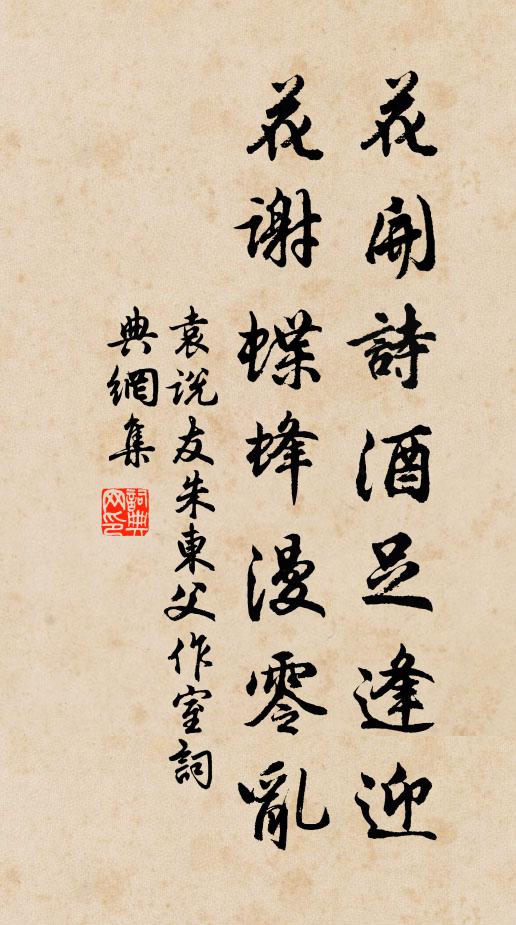 花開詩酒足逢迎
花謝蝶蜂漫零亂
袁説友朱東父作室詞
典網集
詞典網印